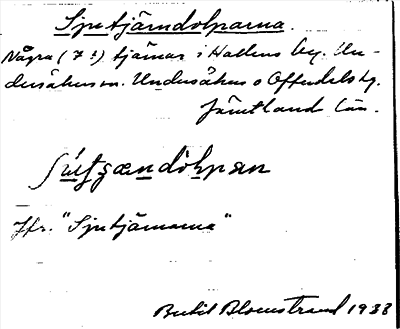 Sjutjärndolparna.
Några (7 ?) tjärnar i Hallens by. Un-
dersåkers sn. Undersåkers o Offerdals tg.
Jämtland län.
Jfr. "Sjutjärnarna"
Bertil Blomstrand 1933